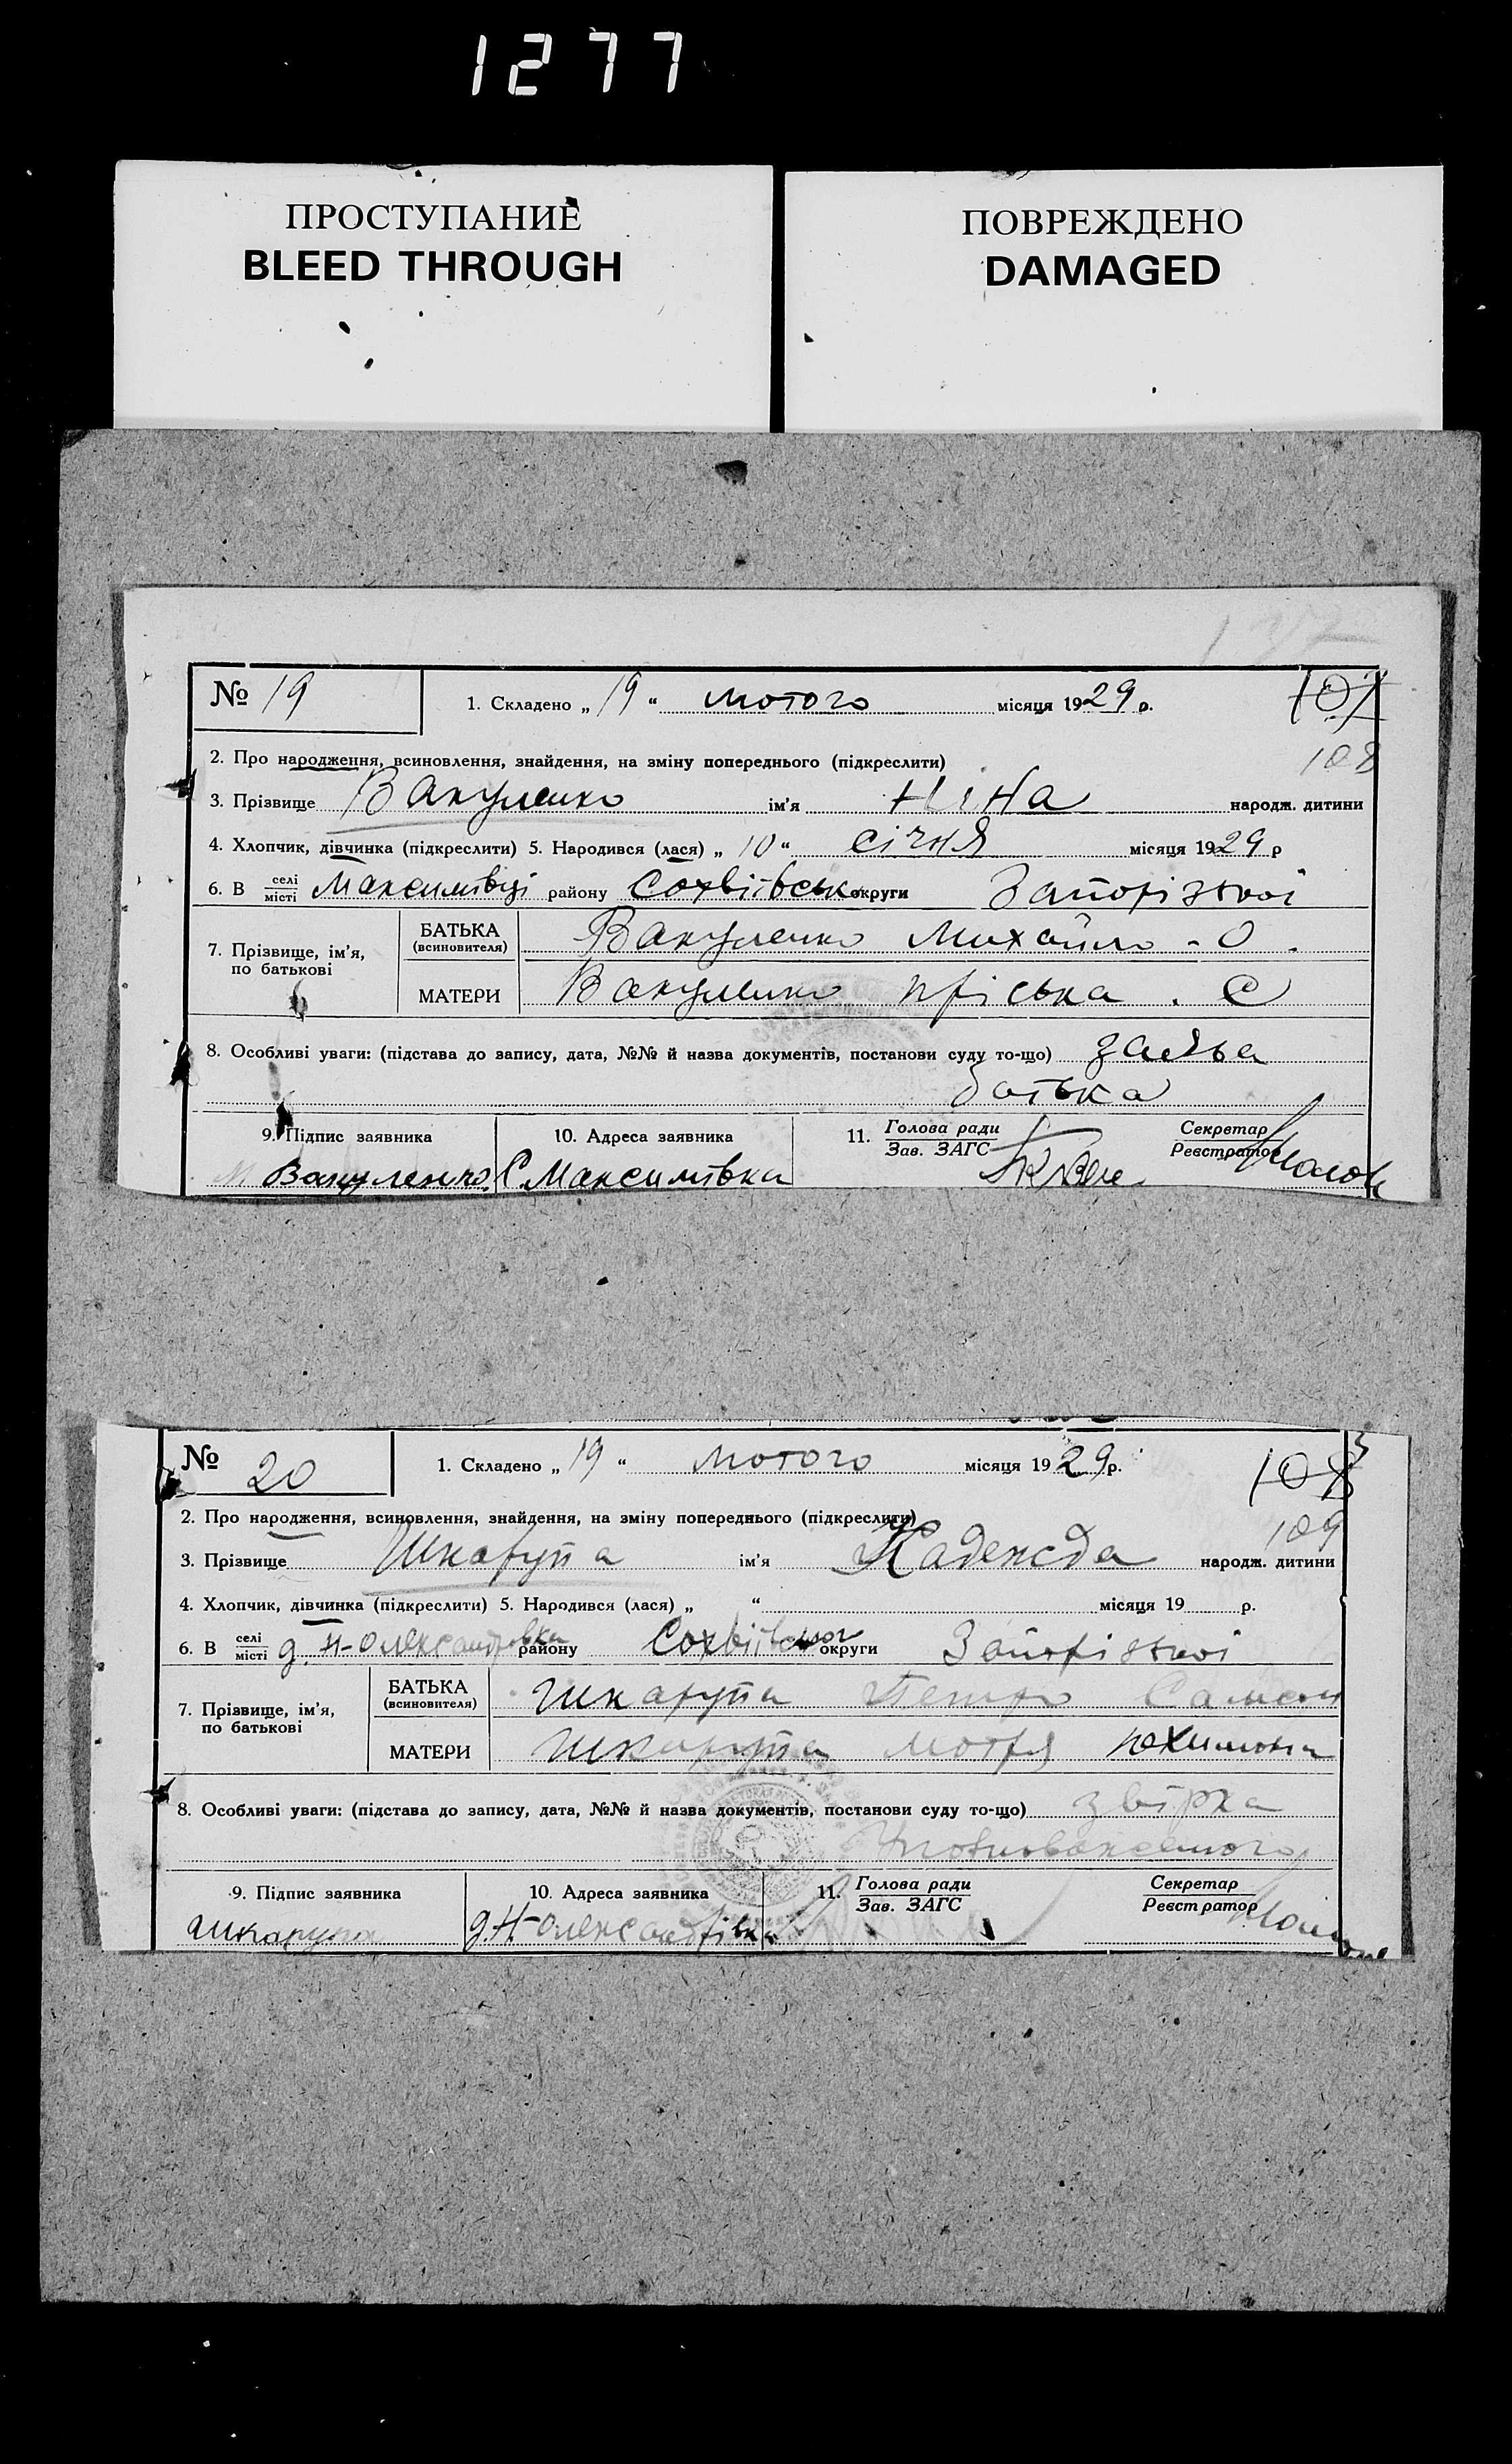 1277
ПРОСТУПАНИЕ
BLEED THROUGH
ПОВРЕЖДЕНО
DAMAGED
№ 19
1. Складено „ 19 “ лютого місяця 1929 р.
107
108
2. Про народження, всиновлення, знайдення, на зміну попереднього (підкреслити)
3. Прізвище Вакуленко ім'я Ніна народж. дитини
4. Хлопчик, дівчинка (підкреслити) 5. Народився (лася) „ 10 “ січня місяця 1929 р
6. В селі/місті Максимівці району Софвіївськ округи Запорізької
7. Прізвище, ім'я, по батькові
БАТЬКА (всиновителя) Вакуленко Михайло - О.
МАТЕРИ Вакуленко Пріська . С
8. Особливі уваги: (підстава до запису, дата, №№ й назва документів, постанови суду то-що) заява
батька
9. Підпис заявника
10. Адреса заявника
11. Голова ради
Зав. ЗАГС
Секретар
Реєстратор
М Вакуленко С. Максимівка
№ 20
1. Складено „ 19 “ лютого місяця 1929 р.
108
109
2. Про народження, всиновлення, знайдення, на зміну попереднього (підкреслити)
3. Прізвище Шкарупа ім'я Надежда народж. дитини
4. Хлопчик, дівчинка (підкреслити) 5. Народився (лася) „ “ місяця 19 р.
6. В селі/місті д. Н-Олександровка району округи Запорізької
7. Прізвище, ім'я, по батькові
БАТЬКА (всиновителя) Шкарупа Петро Самсон
МАТЕРИ Шкарупа Мотря
8. Особливі уваги: (підстава до запису, дата, №№ й назва документів, постанови суду то-що) звірка
Уповноваженого
9. Підпис заявника
10. Адреса заявника
11. Голова ради
Зав. ЗАГС
Секретар
Реєстратор
Шкарупа д. Н-Олександрівка